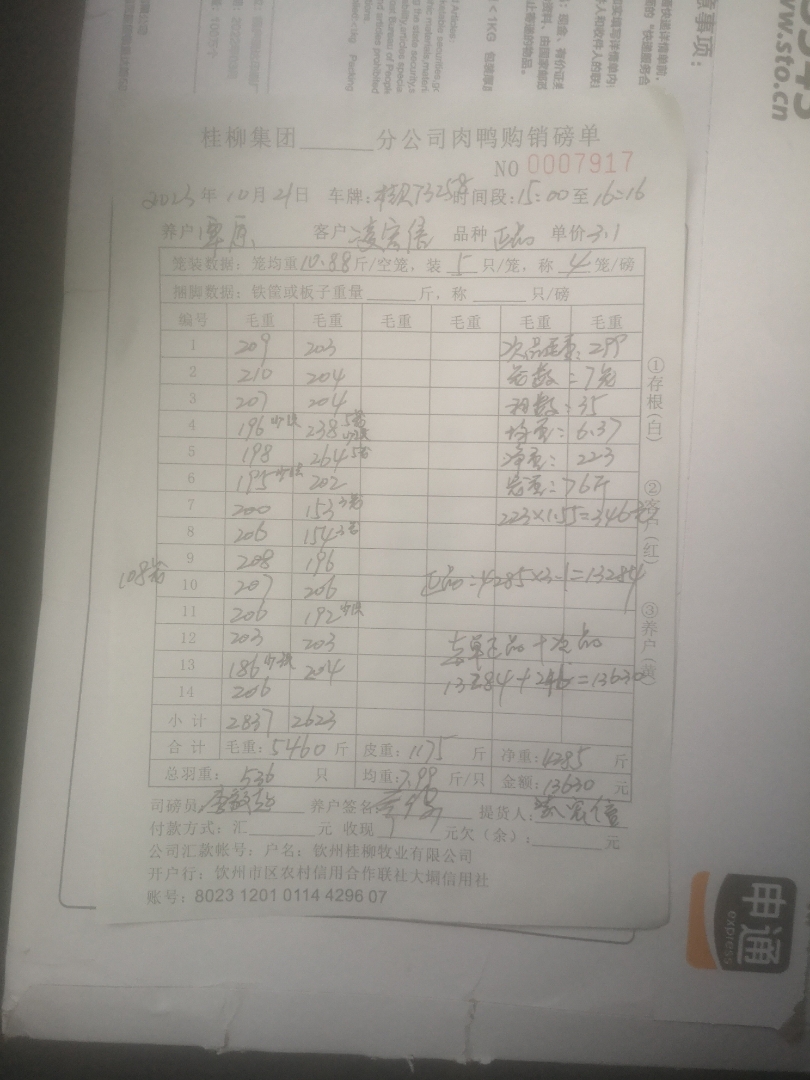 www.sto.cn
桂柳集团______分公司肉鸭购销磅单
NO 0007917
2023年10月21日 车牌: 时间段:15:00至16:16
养户:覃原 客户 凌宏信 品种 正品 单价 3.1
笼装数据:笼均重10.88斤/空笼,装5只/笼,称4笼/磅
捆脚数据:铁筐或板子重量______斤,称______只/磅
编号 毛重 毛重 毛重 毛重 毛重 毛重
1 209 203 次品毛重:299
2 210 204 笼数:=7笼
3 207 204 羽数:35
4 196 238 5笼 均重:6.37
5 198 264 5笼 净重:223
6 195 202 笼重:76斤
7 200 153 3笼 223×1.55=346元
8 206 154 3笼
9 208 196
108笼
10 207 206 正品:4285×3.1=13284
11 206 192
12 203 203 去单正品+次品
13 186 204 13284+346=13630
14 206
小计 2837 2623
合计 毛重:5460斤 皮重:1175斤 净重:4285斤
总羽重:536只 均重:7.99斤/只 金额:13630元
司磅员: 养户签名: 提货人:凌宏信
付款方式:汇______元 收现______元欠(余):______元
公司汇款帐号:户名:钦州桂柳牧业有限公司
开户行:钦州市区农村信用合作联社大垌信用社
账号:8023 1201 0114 4296 07
①存根(白)
②客户(红)
③养户(黄)
申通
express